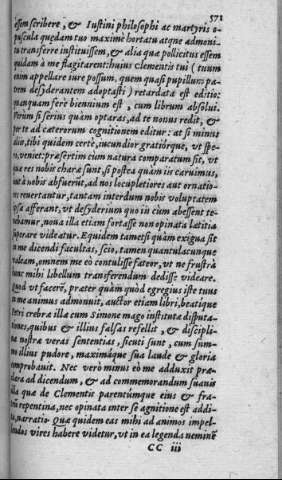 571
essem scribere, & Iustini philosophi ac martyris o-
puscula quædam tuo maxime hortatu atque admoni-
tu transferre instituissem, & alia quæ pollicitus essem
quidam à me flagitarent: huius Clementis tui (tuum
enim appellare iure possum, quem quasi pupillum pa-
rem desyderantem adoptasti) retardata est editio:
nanquam fere biennium est, cum librum absolui.
Verum si serius quàm optaras, ad te nonus redit, &
per te ad cæterorum cognitionem editur: at si minus
alio, tibi quidem certè, iucundior gratiórque, vt spe-
ro, veniet: præsertim cum natura comparatum sit, vt
quæ res nobis charæ sunt, si postea quàm iis caruimus,
aut à nobis abfuerūt, ad nos locupletiores aut ornatio-
res reuertantur, tantam interdum nobis voluptatem
ipsa afferant, vt desyderium quo in cum abessent te-
nebamur, noua illa etiam fortasse non opinata lætitia
superare videatur. Equidem tametsi quàm exigua sit
in me dicendi facultas, scio, tamen quantulacunque
ea
eadem, omnem me eò contulisse fateor, vt ne frustrà
hunc mihi libellum transferendum dedisse videare.
Quod vt facerē, præter quàm quòd egregius iste tuus
in me animus admonuit, auctor etiam libri, beatique
Petri crebra illa cum Simone mago instituta disputa-
tiones, quibus & illius falsas refellit, & discipli-
na nostræ veras sententias, sicuti sunt, cum sum-
mo illius pudore, maximáque sua laude & gloria
comprobauit. Nec verò minus eò me adduxit præ-
clara ad dicendum, & ad commemorandum suauis
illa quæ de Clementis parentúmque eius & fra-
trū repentina, nec opinata inter se agnitione est addi-
ta, narratio. Quæ quidem eas mihi ad animos impel-
lendos vires habere videtur, vt in ea legenda neminē
CC iii